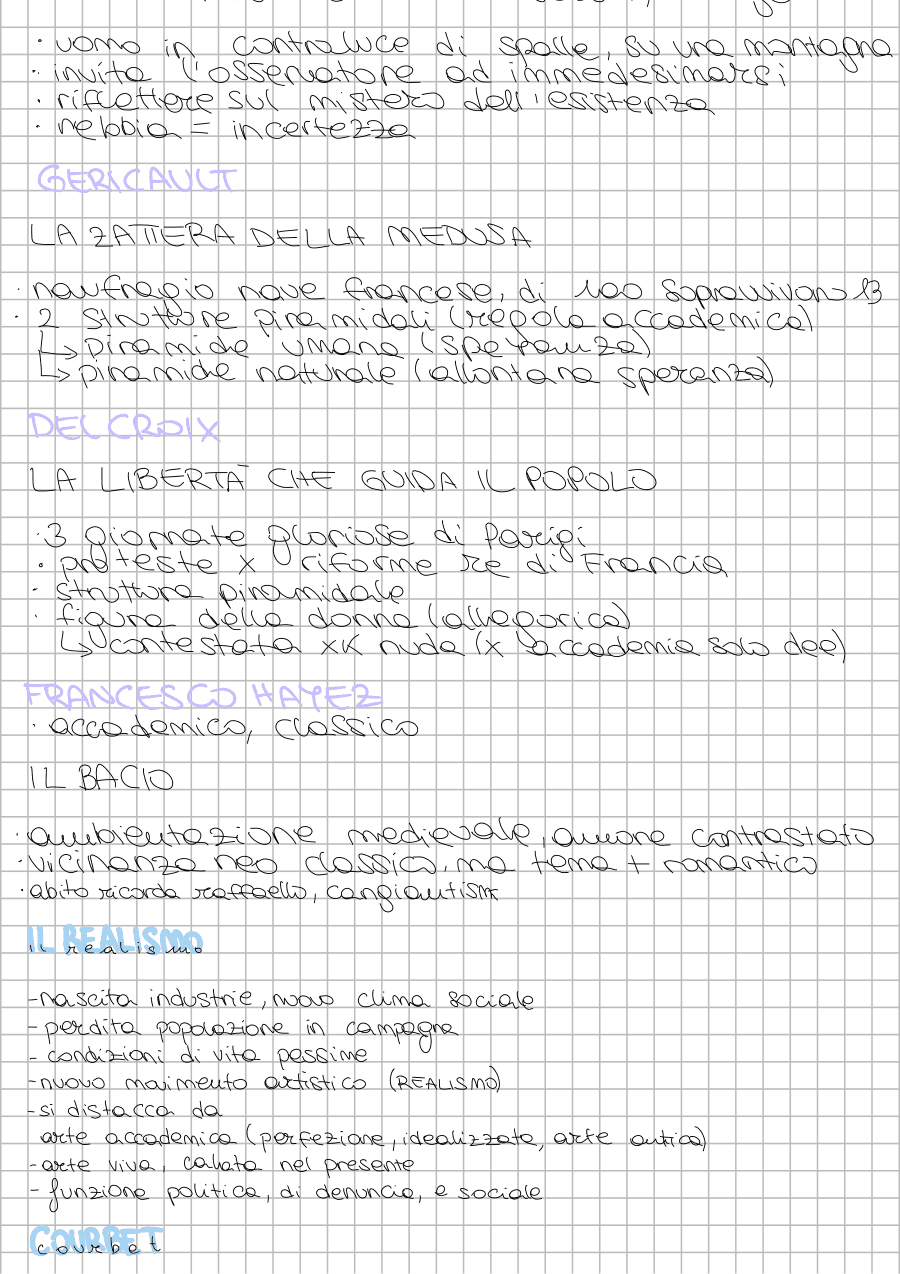 · uomo in controluce di spalle, su una montagna
· invita l'osservatore ad immedesimarsi
· riflettere sul mistero dell'esistenza
· nebbia = incertezza
GERICAULT
LA ZATTERA DELLA MEDUSA
· naufragio nave francese, di 140 sopravvivono 13
· 2 strutture piramidali (regola accademica)
↳ piramide umana (speranza)
↳ piramide naturale (allontana speranza)
DELCROIX
LA LIBERTÀ CHE GUIDA IL POPOLO
· 3 giornate gloriose di Parigi
· proteste x riforme re di Francia
· struttura piramidale
· figura della donna (allegorica)
↳ contestata xk nuda (x accademia solo dee)
FRANCESCO HAYEZ
· accademico, classico
IL BACIO
· ambientazione medievale, amore contrastato
· vicinanza neo classico, ma tema + romantico
· abito ricorda raffaello, cangiantism
IL REALISMO
il realismo
- nascita industrie, nuovo clima sociale
- perdita popolazione in campagna
- condizioni di vita pessime
- nuovo movimento artistico (REALISMO)
- si distacca da
arte accademica (perfezione, idealizzata, arte antica)
- arte viva, calata nel presente
- funzione politica, di denuncia, e sociale
COURBET
courbet